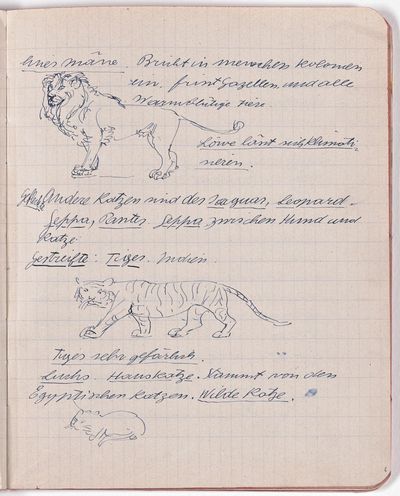 eines Mäne. Bricht in menschen Kolonien
ein. frist Gazellen und alle
Warmblütige tiere.
Löwe länt sich klimati-
sieren.
Andere Katzen sind der Jaguar, Leopard-
Geppa, Panter. Geppa zwischen Hund und
Katze.
Gestreifte: Tiger. Indien.
Tiger sehr gefärlich.
Luchs - Hauskatze. Stammt von den
Egyptischen Katzen. Wilde Katze.